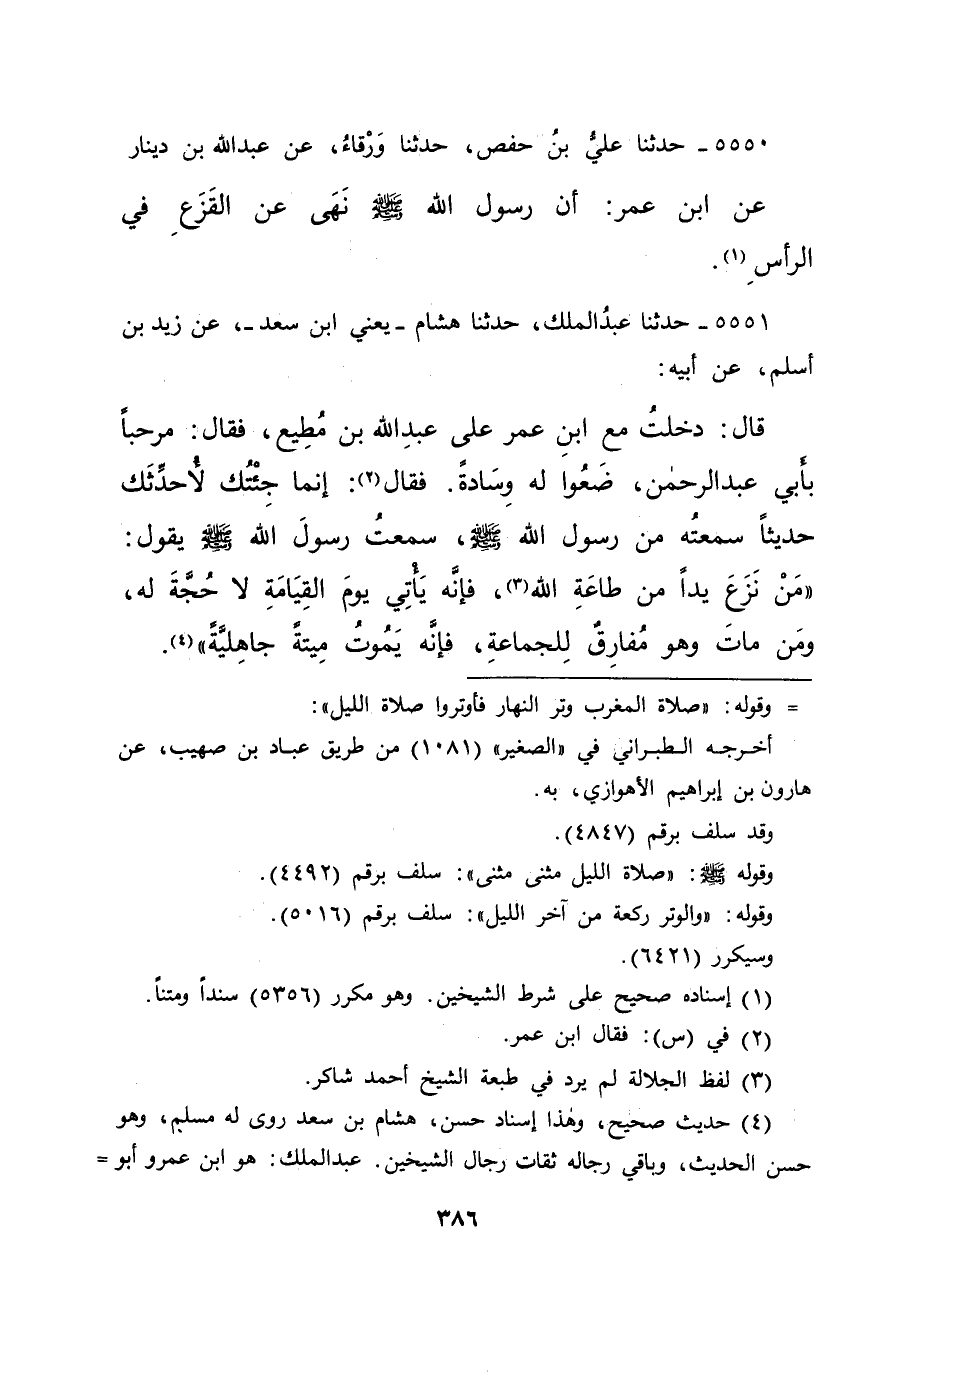 ٥٥٥٠ ـ حدثنا عليُّ بنُ حفص، حدثنا وَرْقاءُ، عن عبدالله بن دينار
عن ابن عمر: أن رسول الله ﷺ نَهَى عن القَزَعِ في
الرأسِ(١).
٥٥٥١ ـ حدثنا عبدُالملك، حدثنا هشام ـ يعني ابن سعد ـ، عن زيد بن
أسلم، عن أبيه:
قال: دخلتُ مع ابنِ عمر على عبدِالله بن مُطِيع، فقال: مرحباً
بأَبي عبدالرحمٰن، ضَعُوا له وِسَادةً. فقال(٢): إنما جِئْتُك لأُحدِّثَك
حديثاً سمعتُه من رسول الله ﷺ، سمعتُ رسولَ الله ﷺ يقول:
«مَنْ نَزَعَ يداً من طاعَةِ الله(٣)، فإنَّه يَأْتِي يومَ القِيَامَةِ لا حُجَّةَ له،
ومَن ماتَ وهو مُفارِقٌ لِلجماعةِ، فإنَّه يَمُوتُ مِيتةً جاهِليَّةً»(٤).
= وقوله: «صلاة المغرب وتر النهار فأوتروا صلاة الليل»:
أخرجه الطبراني في «الصغير» (١٠٨١) من طريق عباد بن صهيب، عن
هارون بن إبراهيم الأهوازي، به.
وقد سلف برقم (٤٨٤٧).
وقوله ﷺ: «صلاة الليل مثنى مثنى»: سلف برقم (٤٤٩٢).
وقوله: «والوتر ركعة من آخر الليل»: سلف برقم (٥٠١٦).
وسيكرر (٦٤٢١).
(١) إسناده صحيح على شرط الشيخين. وهو مكرر (٥٣٥٦) سنداً ومتناً.
(٢) في (س): فقال ابن عمر.
(٣) لفظ الجلالة لم يرد في طبعة الشيخ أحمد شاكر.
(٤) حديث صحيح، وهٰذا إسناد حسن، هشام بن سعد روى له مسلم، وهو
حسن الحديث، وباقي رجاله ثقات رجال الشيخين. عبدالملك: هو ابن عمرو أبو =
٣٨٦